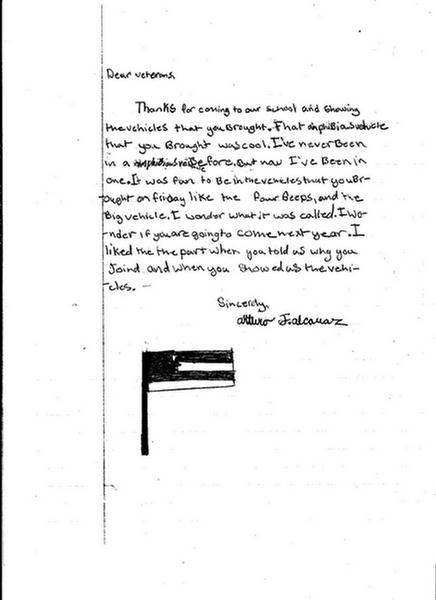 Dear veterans,
Thanks for coming to our school and showing
the vehicles that you Brought. That amphibias vehicle
that you Brought was cool. I've never Been
in a Before. But now I've Been in
one. It was fun to Be in the vehicles that you Br-
ought on friday like the four Beeps, and the
Big vehicle. I wonder what it was called. I wo-
nder if you are going to come next year. I
liked the the part when you told us why you
Joind and when you showed us the vehi-
cles.
Sincerely,
Arturo J. alcauaz